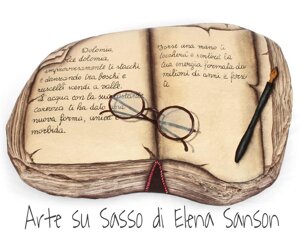 Dolomia,
dolomia,
improvvisamente ti stacchi
e danzando tra boschi e
ruscelli scendi a valle.
acqua con la sua costante
carezza ti ha dato una
nuova forma, unica
morbida.
Forse una mano ti
toccherà e sentirà la
tua energia formata da
milioni di anni e forse
ti
Arte su Sasso di Elena Sanson